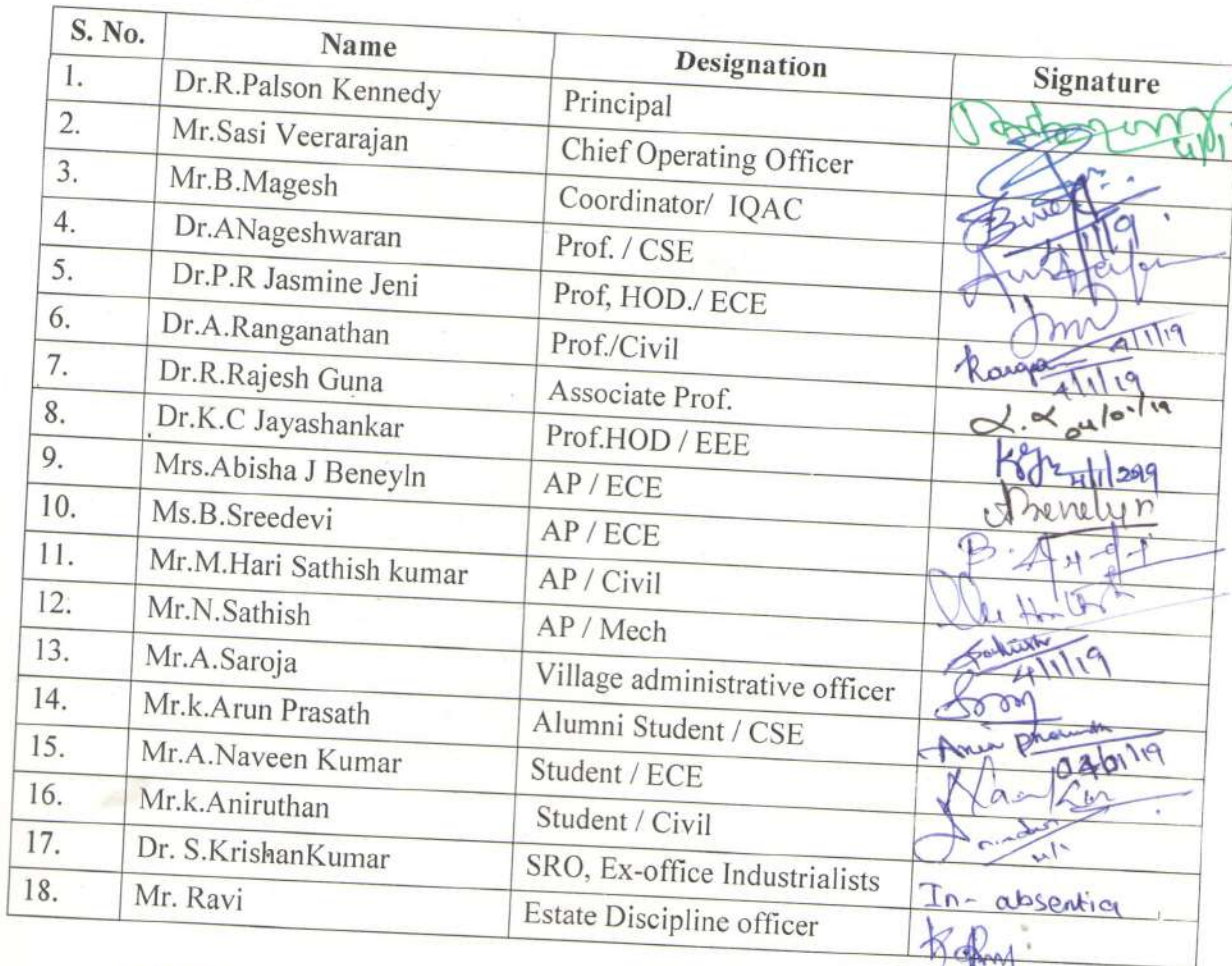 S. No. Name Designation Signature
1. Dr.R.Palson Kennedy Principal
2. Mr.Sasi Veerarajan Chief Operating Officer
3. Mr.B.Magesh Coordinator/ IQAC
4. Dr.ANageshwaran Prof. / CSE
5. Dr.P.R Jasmine Jeni Prof, HOD./ ECE
6. Dr.A.Ranganathan Prof./Civil 4/1/19
7. Dr.R.Rajesh Guna Associate Prof. 04/01/19
8. Dr.K.C Jayashankar Prof.HOD / EEE 4/1/2019
9. Mrs.Abisha J Beneyln AP / ECE
10. Ms.B.Sreedevi AP / ECE
11. Mr.M.Hari Sathish kumar AP / Civil
12. Mr.N.Sathish AP / Mech Sathish 4/1/19
13. Mr.A.Saroja Village administrative officer
14. Mr.k.Arun Prasath Alumni Student / CSE
15. Mr.A.Naveen Kumar Student / ECE
16. Mr.k.Aniruthan Student / Civil
17. Dr. S.KrishanKumar SRO, Ex-office Industrialists In- absentia
18. Mr. Ravi Estate Discipline officer